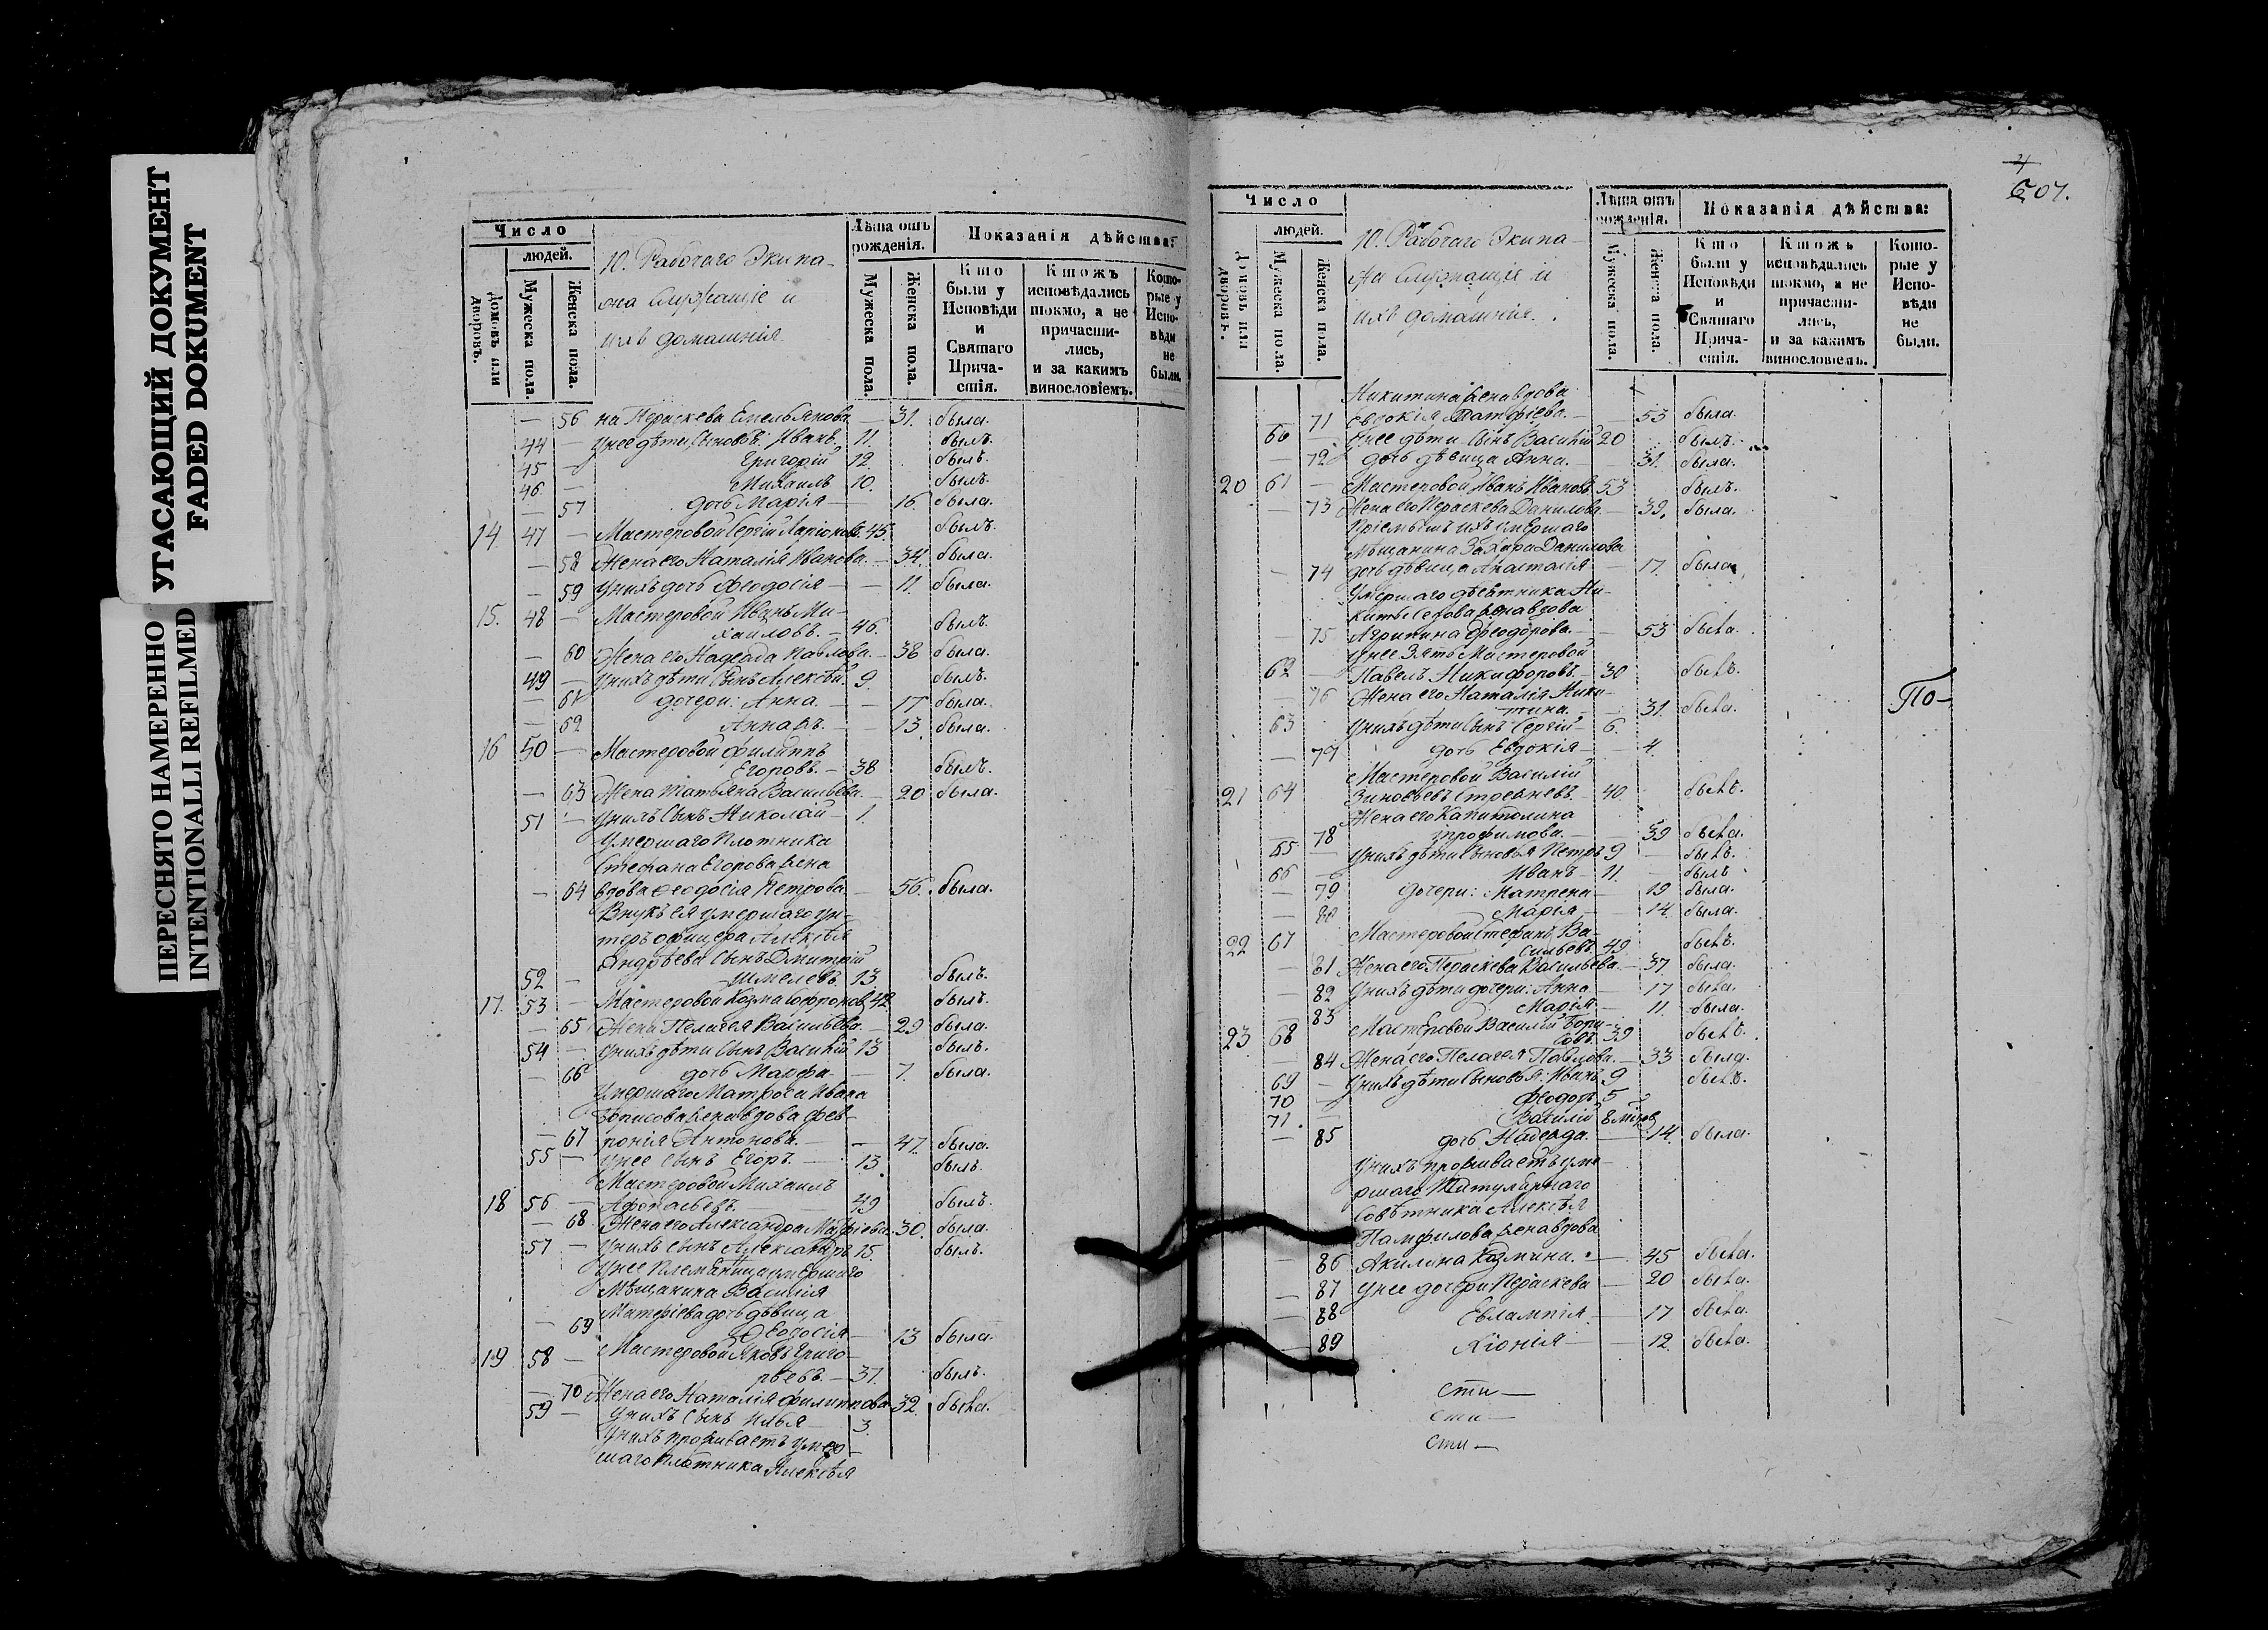 УГАСАЮЩИЙ ДОКУМЕНТ
FADED DOKUMENT
ПЕРЕСНЯТО НАМЕРЕННО
INTENTIONALLI REFILMED
Число
людей.
Домовъ или дворовъ.
Мужеска пола.
Женска пола.
10. Рабочаго Экипа-
жа Служащіе и
ихъ домашнія
Лѣта отъ рожденія.
Мужеска пола
Женска пола.
Показанія дѣйства:
Кто были у Исповѣди и Святаго Причастія.
Ктожъ исповѣдались токмо, а не причастились, и за какимъ винословіемъ.
Которые у Исповѣди не были.
— 56 на Параскева Емельянова — 31. была.
44 — У нее дѣти, сыновья: Иванъ 11. былъ.
45 — Григорій 12. былъ.
46 — Михаилъ 10. былъ.
— 57 дочь Марія — 16. была.
14. 47 — Мастеровой Сергій Ларіоновъ 45. былъ.
— 58 Жена его Наталія Иванова. — 34. была.
— 59 У нихъ дочь Феодосія — — 11. была.
15. 48 — Мастеровой Иванъ Ми-
хаиловъ. — 46. былъ.
— 60 Жена его Надежда Павлова. — 38 была.
49 — У нихъ дѣти сынъ Алексѣй. 9. былъ.
— 61 дочери: Анна. — — 17 была.
— 62 Анна въ. — — 13. была.
16 50 — Мастеровой Филиппъ
Егоровъ. — 38 былъ.
— 63 Жена Татьяна Васильева. — 20 была.
51 — У нихъ сынъ Николай — 1.
Умершаго Плотника
Стефана Егорова жена
— 64 вдова Феодосія Петрова. — 56. была.
Внукъ ея умершаго ун-
теръ офицера Алексѣя
Андреева сынъ Дмитрій
52 — Шмелевъ. 13 былъ.
17. 53 — Мастеровой Козма Софроновъ 42 былъ.
— 65 Жена Пелагея Васильева. — 29 была.
54 — У нихъ дѣти сынъ Василій 13 былъ.
— 66 дочь Марфа — — 7. была.
Умершаго Матроса Ивана
Борисова жена вдова Фев-
— 67 ронія Антонова. — — 47. была.
55 — У нее сынъ Егоръ. — 13. былъ.
Мастеровой Михаилъ
18 56 — Афонасьевъ. 49 былъ.
— 68 Жена его Александра Матфіева. 30. была.
57 — У нихъ сынъ Александръ 15. былъ.
У нее племянница умершаго
Мѣщанина Василія
Матфіева дочь дѣвица
69 Феодосія — 13 была.
19 58 — Мастеровой Яковъ Григо-
рьевъ. — 37. былъ.
— 70 Жена его Наталія Филиппова 32. была.
59 — У нихъ сынъ Илья — 3.
У нихъ проживаетъ умер-
шаго Плотника Алексѣя
607.
Число
людей.
Домовъ или дворовъ.
Мужеска пола.
Женска пола.
10. Рабочаго Экипа-
жа Служащіе и
ихъ домашнія.
Лѣта отъ рожденія.
Мужеска пола.
Женска пола.
Показанія дѣйства:
Кто были у Исповѣди и Святаго Причастія.
Ктожъ исповѣдались токмо, а не причастились, и за какимъ винословіемъ.
Которые у Исповѣди не были.
Никитина жена вдова
— 71 Евдокія Матфіева. — 53 была.
60 — У нее дѣти сынъ Василій 20 былъ.
— 72 дочь дѣвица Анна. — 31. была.
20 61 — Мастеровой Иванъ Ивановъ 53 былъ.
— 73 Жена его Параскева Данилова. — 39. была.
Пріемышъ ихъ умершаго
Мѣщанина Захара Данилова
— 74 дочь дѣвица Анастасія — 17. была.
Умершаго дѣсятника Ни-
киты Седова жена вдова
— 75 Агрипина Феодорова. — 53 была.
У нее Зять Мастеровой
62 — Павелъ Никифоровъ. — 30 былъ.
— 76 Жена его Наталія Ники-
тина. — 31. была.
63 У нихъ дѣти сынъ Сергій — 6.
— 77 дочь Евдокія — — 4.
Мастеровой Василій
21 64 Зиновьевъ — 40. былъ.
Жена его Капитолина
— 78 Трофимова. — — 39 была.
65 — У нихъ дѣти сыновья Петръ 9 — былъ.
66 — Иванъ — 11. — былъ
— 79 дочери: Матрена — — 19 была.
— 80 Марія — — 14. была.
22 67 Мастеровой Стефанъ Ва-
сильевъ 49 былъ.
— 81 Жена его Параскева Васильева. — 37. была.
— 82 У нихъ дѣти дочери: Анна — — 17 была.
— 83 Марія — — 11. была.
23 68 Мастеровой Василій Бори-
совъ. 39 былъ.
— 84 Жена его Пелагея Павлова. — 33 была.
69 — У нихъ дѣти сыновья: Иванъ 9 былъ.
70 — Феодоръ 5
71. — Василій 8 мѣсяц.
— 85 дочь Надежда. — 14. была.
У нихъ проживаетъ уме-
ршаго Титулярнаго
Совѣтника Алексѣя
Памфилова жена вдова
— 86 Акилина Козмина. — 45 была.
— 87 У нее дочери Параскева — 20 была.
— 88 Евлампія. — 17 была.
— 89 Хіонія — — 12. была.
сти —
сти —
сти —
По-